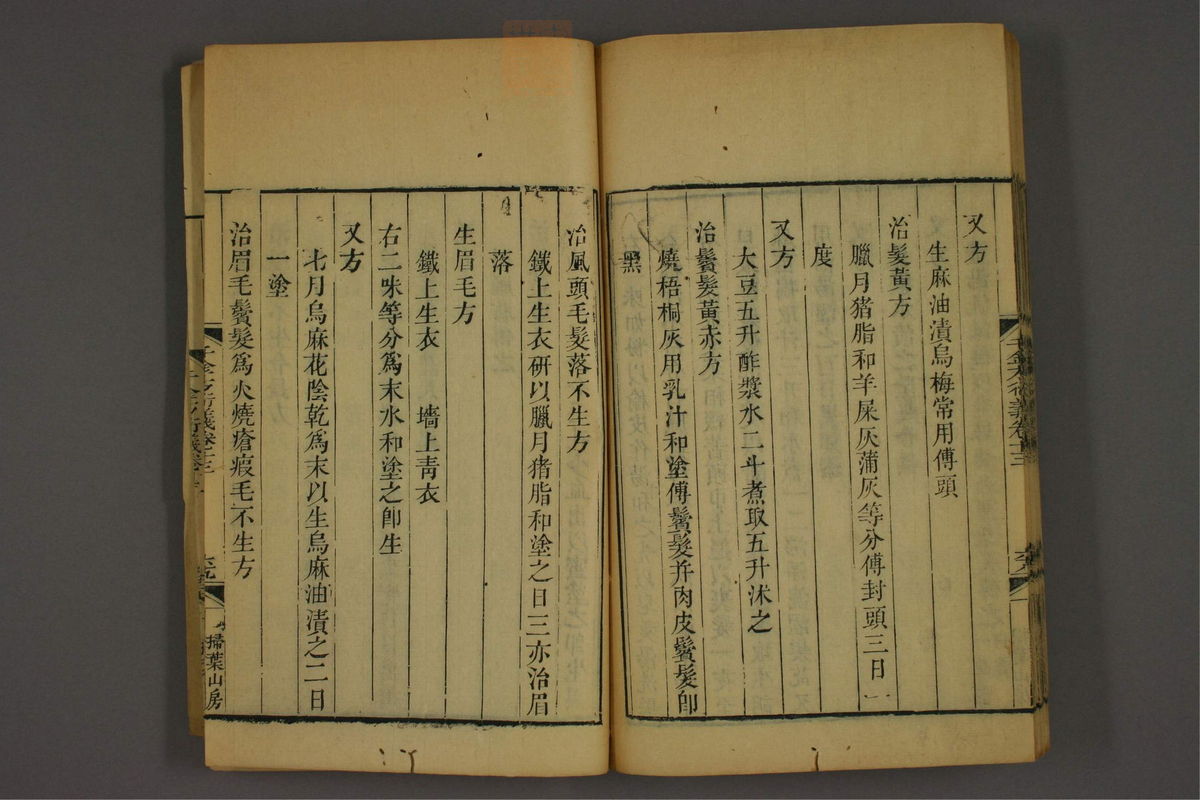 又方
生麻油漬烏梅常用傅頭
治髮黃方
臘月猪脂和羊屎灰蒲灰等分傅封頭三日一
度
又方
大豆五升酢漿水二斗煮取五升沐之
治鬢髮黃赤方
燒梧桐灰用乳汁和塗傅鬢髮并肉皮鬢髮卽
黑
治風頭毛髮落不生方
鐵上生衣研以臘月猪脂和塗之日三亦治眉
落
生眉毛方
鐵上生衣　墻上靑衣
右二味等分爲末水和塗之卽生
又方
七月烏麻花陰乾爲末以生烏麻油漬之二日
一塗
治眉毛鬢髮爲火燒瘡瘢毛不生方
千金方衍義卷十三
掃葉山房